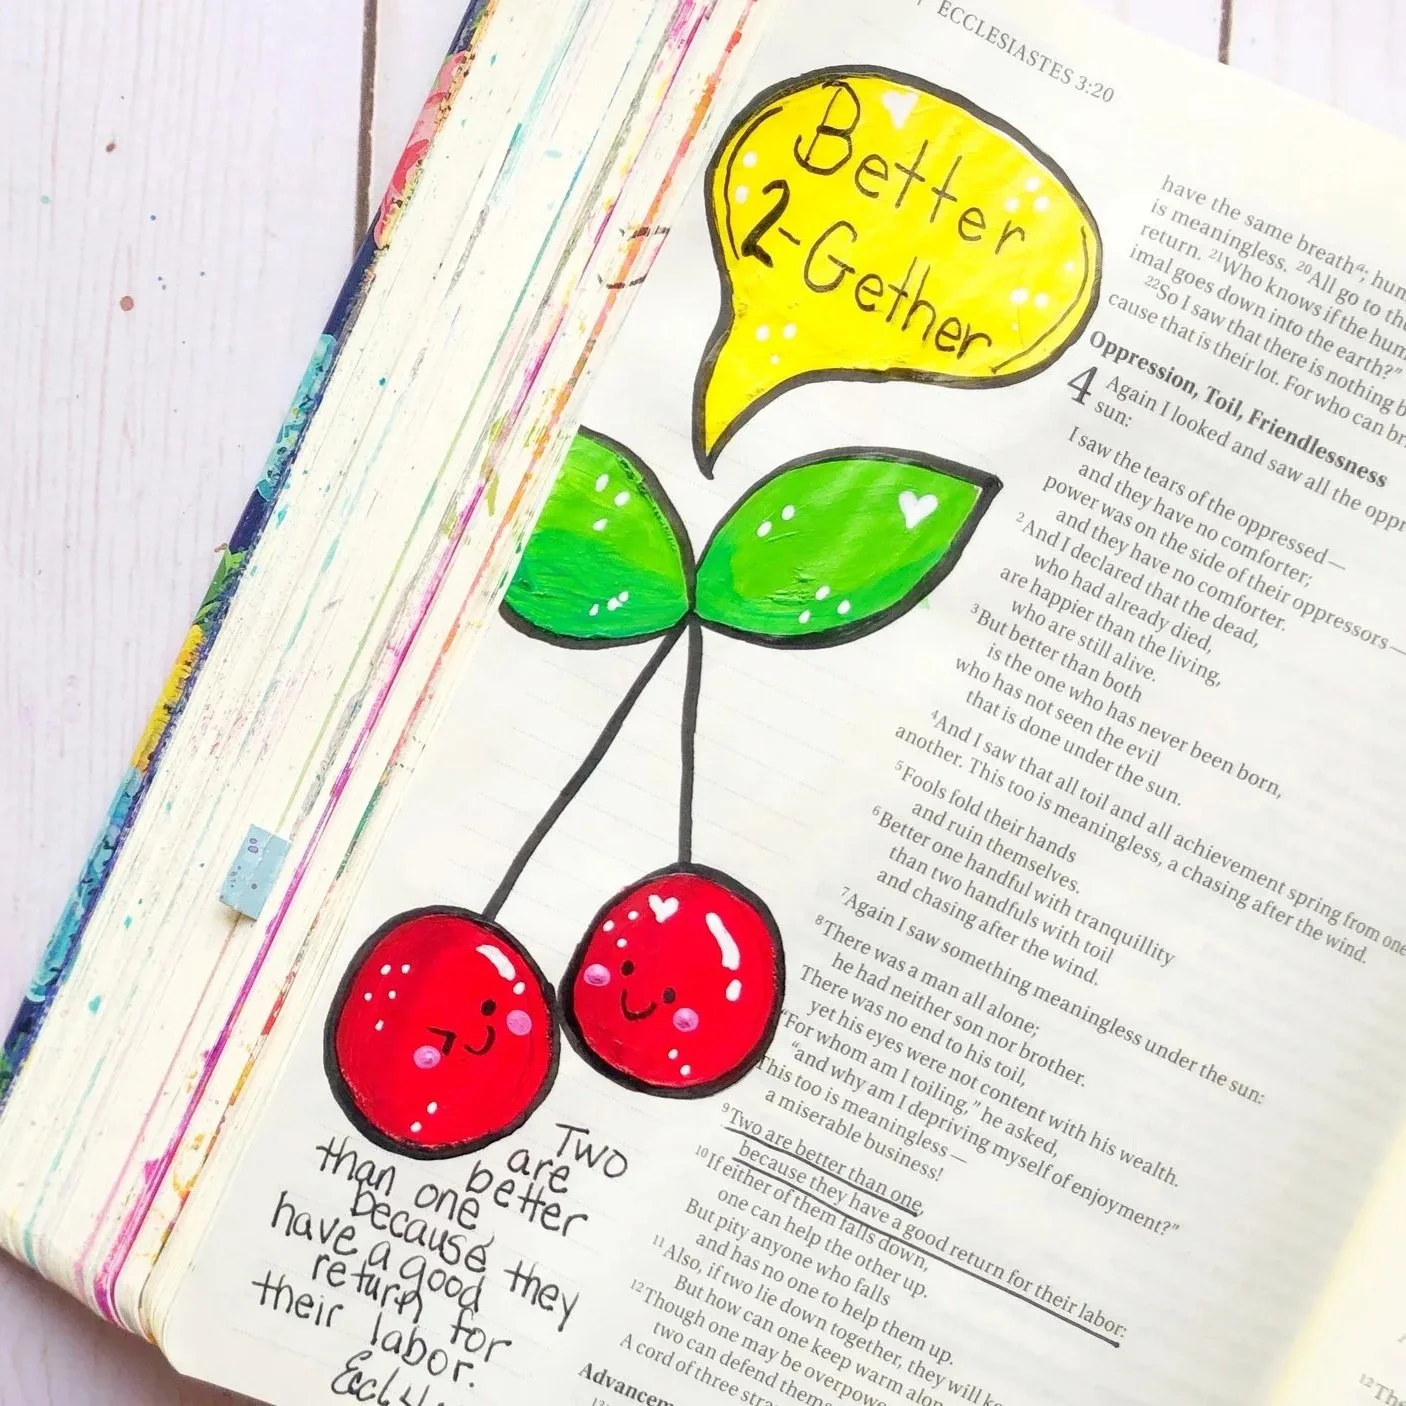 ECCLESIASTES 3:20
Better
2-Gether
have the same breath a; hum
is meaningless. 20 All go to the
return. 21 Who knows if the hum
imal goes down into the earth?"
22 So I saw that there is nothing b
cause that is their lot. For who can br
Oppression, Toil, Friendlessness
4 Again I looked and saw all the oppr
sun:
I saw the tears of the oppressed—
and they have no comforter;
power was on the side of their oppressors—
and they have no comforter.
2 And I declared that the dead,
who had already died,
are happier than the living,
who are still alive.
3 But better than both
is the one who has never been born,
who has not seen the evil
that is done under the sun.
4 And I saw that all toil and all achievement spring from one
another. This too is meaningless, a chasing after the wind.
5 Fools fold their hands
and ruin themselves.
6 Better one handful with tranquillity
than two handfuls with toil
and chasing after the wind.
7 Again I saw something meaningless under the sun:
8 There was a man all alone;
he had neither son nor brother.
There was no end to his toil,
yet his eyes were not content with his wealth.
"For whom am I toiling," he asked,
"and why am I depriving myself of enjoyment?"
This too is meaningless—
a miserable business!
9 Two are better than one,
because they have a good return for their labor:
10 If either of them falls down,
one can help the other up.
But pity anyone who falls
and has no one to help them up.
11 Also, if two lie down together, they will ke
But how can one keep warm alon
12 Though one may be overpowe
two can defend thems
A cord of three stra
Advancem
Two
are
better
than one
because they
have a good
return for
their labor.
Eccl 4
12 Ths